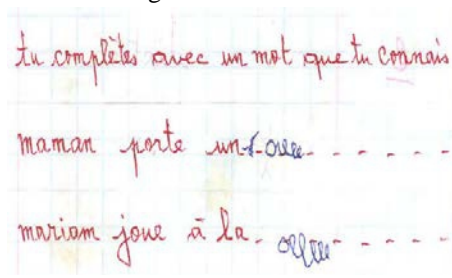 tu complètes avec un mot que tu connais
maman porte un - - - - -
mariam joue à la - - - - - -